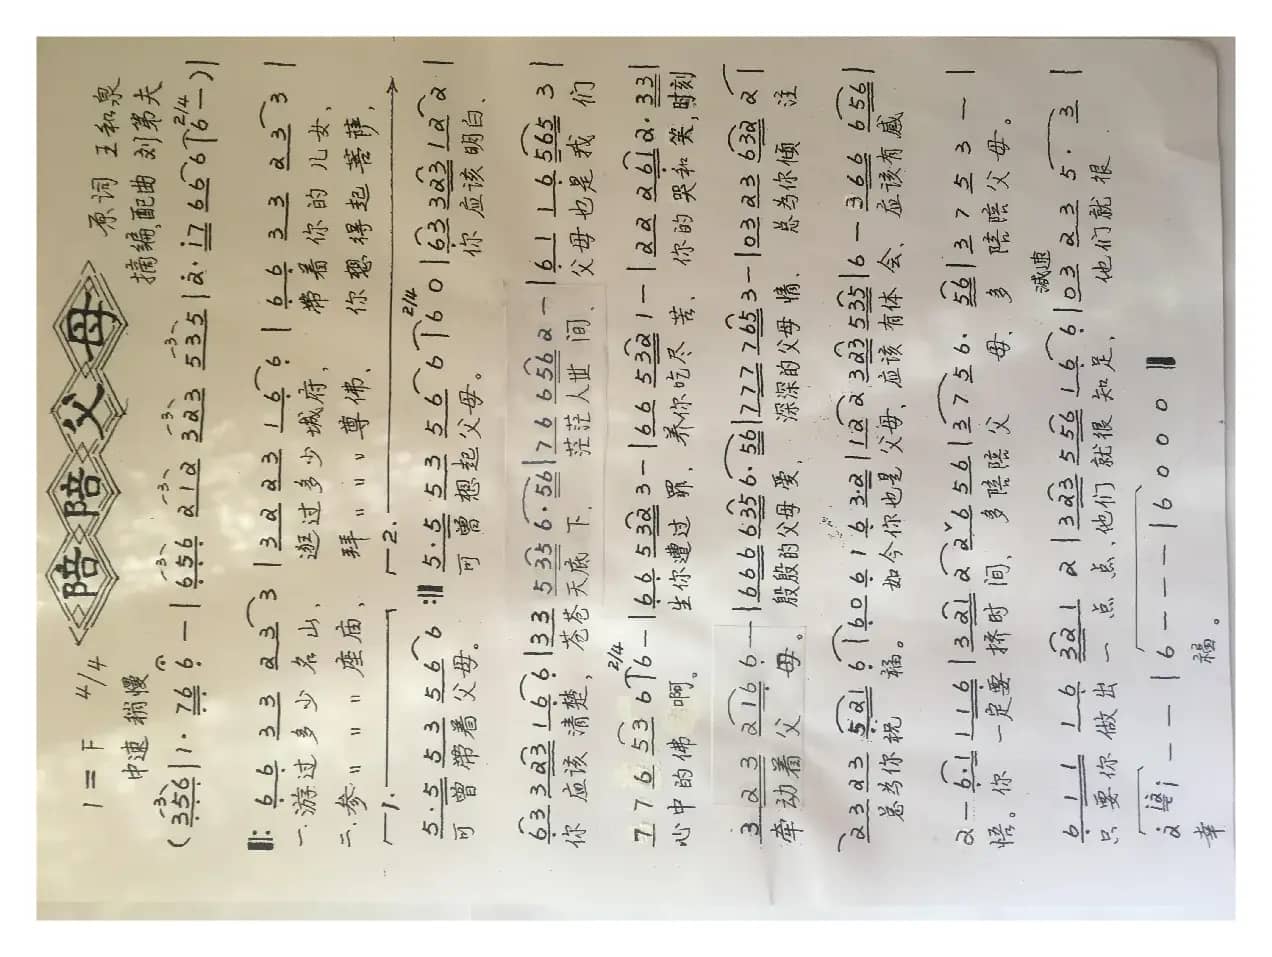 陪陪父母
1=F 4/4
原词 王和泉
中速稍慢
摘编、配曲 刘第夫
(356 | 1· 76 6 — | 656 212 323 535 | 2· i7 66 6 | 2/4 6 — ) |
‖: 66 33 23 3 | 32 23 16 6 | 66 33 23 3 |
一.游过多少名山, 逛过多少城府, 带着你的儿女,
二.参〃〃〃座庙, 拜〃〃〃尊佛、 你想得起菩萨,
1. 2.
5·5 53 56 6 :‖ 5·5 53 56 6 | 2/4 6 0 | 63 323 12 2 |
可曾带着父母。 可曾想起父母。 你应该明白、
63 323 16 6 | 33 535 6·56 | 76 656 2 — | 61 16 565 3 |
你应该清楚, 苍苍天底下、茫茫人世间、 父母也是我们
77 6 53 6 | 2/4 6 — | 66 532 3 — | 66 532 1 — | 22 2 612· 33 |
心中的佛啊。 生你遭过罪, 养你吃尽苦、 你的哭和笑,时刻
3 23 216 6 — | 666 6356·56 | 777 7653 — | 03 23 632 2 |
牵动着父母。 殷殷的父母爱, 深深的父母情、 总为你倾注
23 23 521 6 | 60 61 63·2 | 12 2 323 535 | 6 — 36 66 656 |
总为你祝福。 如今你也是父母, 应该有体会、 应该有感
2 — 6·1 116 | 321 2 2 6 56 | 3 7 5 6· 56 | 3 7 5 3 — |
悟。你一定要挤时间, 多陪陪父母、多陪陪父母。
减速
6 11 16 321 2 | 323 556 16 6 | 03 23 5· 3 |
只要你做出一点点、他们就很知足, 他们就很
2 i2i — — | 6 — — — | 6 0 0 0 ‖
幸福。